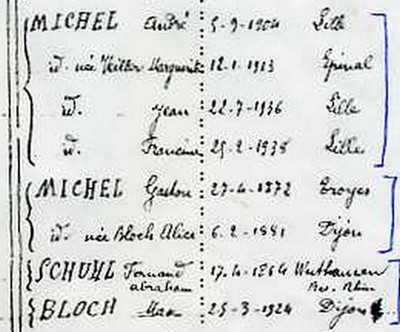 MICHEL André 5-9-1904 Lille
id. née Marguerite 12-1-1913 Epinal
id. Jean 22-7-1936 Lille
id. Francine 25-2-1938 Lille
MICHEL Gaston 27-4-1872 Troyes
id. née Bloch Alice 6-2-1881 Dijon
SCHUHL Fernand 17-4-1864
abraham Bas-Rhin
BLOCH Max 25-3-1924 Dijon